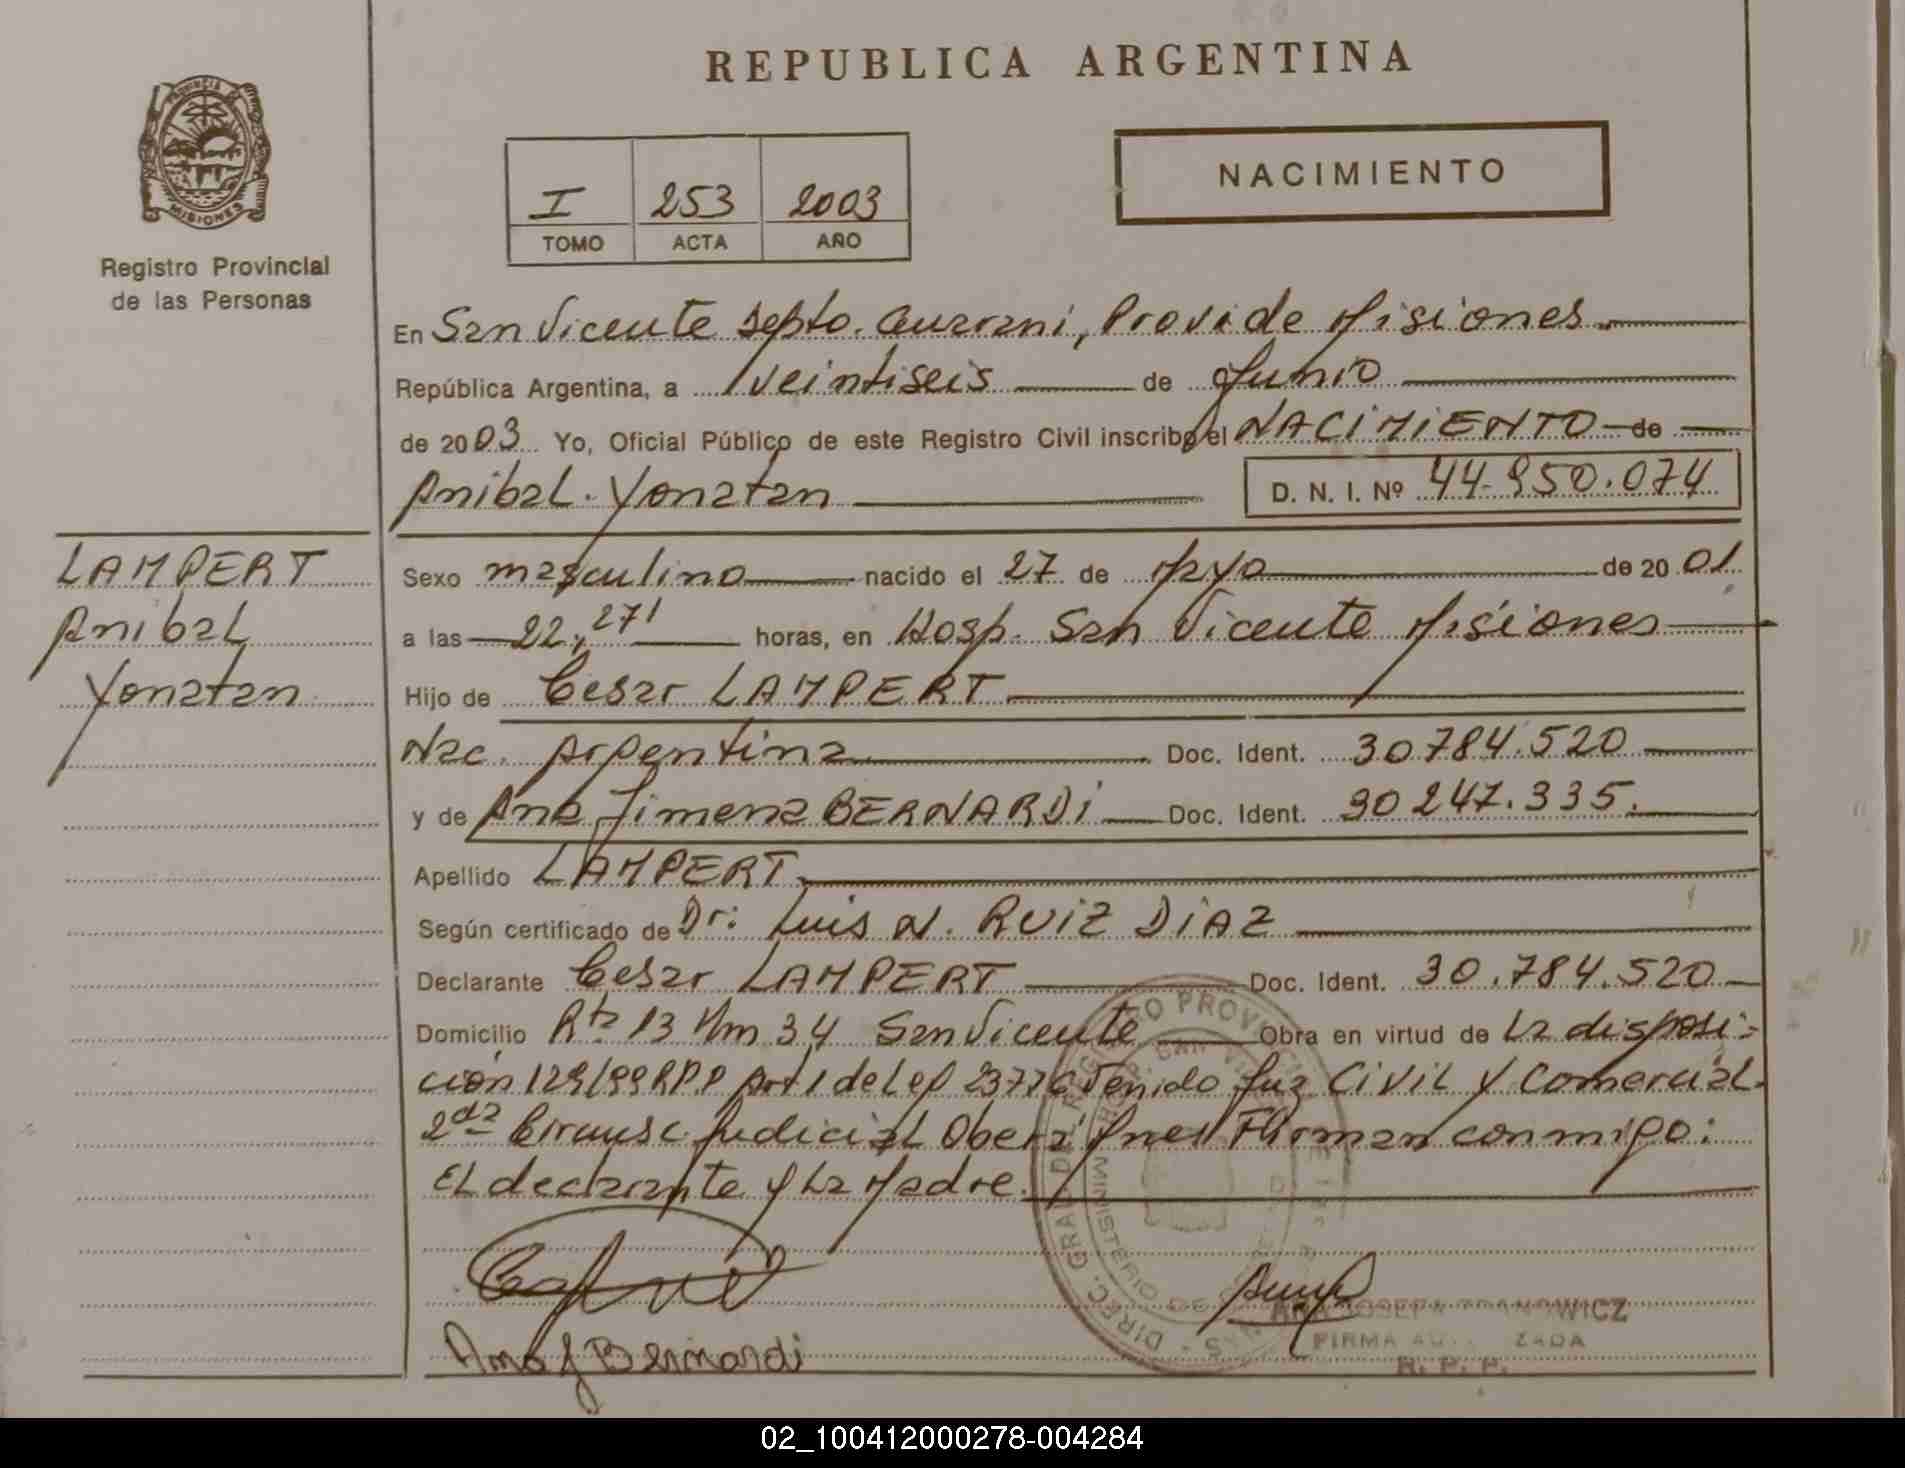 REPUBLICA ARGENTINA
PROVINCIA
MISIONES
Registro Provincial
de las Personas
I 253 2003
TOMO ACTA AÑO
NACIMIENTO
En San Vicente Depto. Guarani, Prov. de Misiones.
República Argentina, a veintiseis de Junio
de 2003 Yo, Oficial Público de este Registro Civil inscribo el NACIMIENTO de
Anibal Yonatan D. N. I. Nº 44.950.074
LAMPERT
Anibal
Yonatan
Sexo masculino nacido el 27 de Mayo de 2001
a las 22,27' horas, en Hosp. San Vicente Misiones
Hijo de Cesar LAMPERT
Nac. Argentina Doc. Ident. 30784.520
y de Ana Jimena BERNARDI Doc. Ident. 30247.335.
Apellido LAMPERT
Según certificado de Dr: Luis N. RUIZ DIAZ
Declarante Cesar LAMPERT Doc. Ident. 30.784.520
Domicilio Rta 13 Km 34 San Vicente Obra en virtud de La disposi-
cion 129/99 R.P.P Art 1 de Ley 23776 Venido Juz Civil y Comercial.
2da Circunsc. Judicial Obera Mnes Firman conmigo:
El declarante y La Madre.
Ana J Bernardi
DIREC. GRAL. DEL REGISTRO PROVINCIAL
MINISTERIO DE
FIRMA AUTORIZADA
R. P. P.
02_100412000278-004284